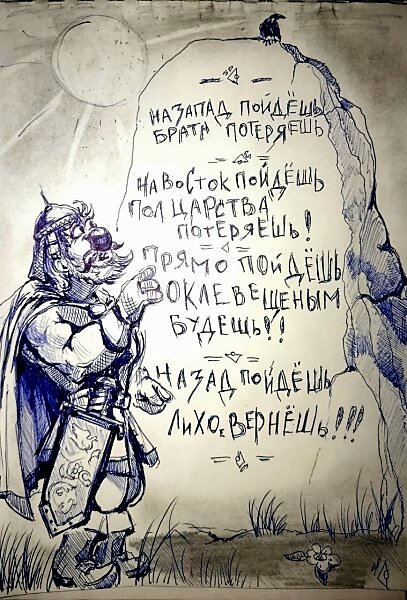 НА ЗАПАД ПОЙДЁШЬ
БРАТА ПОТЕРЯЕШЬ
НА ВОСТОК ПОЙДЁШЬ
ПОЛ ЦАРСТВА
ПОТЕРЯЕШЬ!
ПРЯМО ПОЙДЁШЬ
ОКЛЕВЕЩЕНЫМ
БУДЕШЬ!!
НАЗАД ПОЙДЁШЬ
ЛИХОЕ ВЕРНЁШЬ!!!